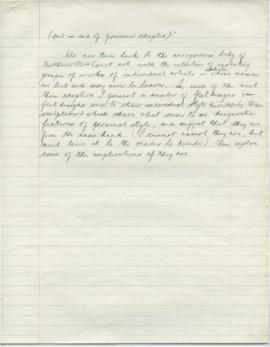 (put in end of previous chapter)?
We now turn back to the anonymous body of
Northern NW Coast art with the intention of isolating
groups of works of individual artists – whose names
are lost and may never be known. In each of the next
three chapters I present a number of flat designs (as
flat designs seem to show individual style more than
sculpture) which share what seem to me diagnostic
features of personal style, and suggest that they are
from the same hand. (I cannot that they are, but
must leave it to the reader to decide) Then explore
some of the implications if they are